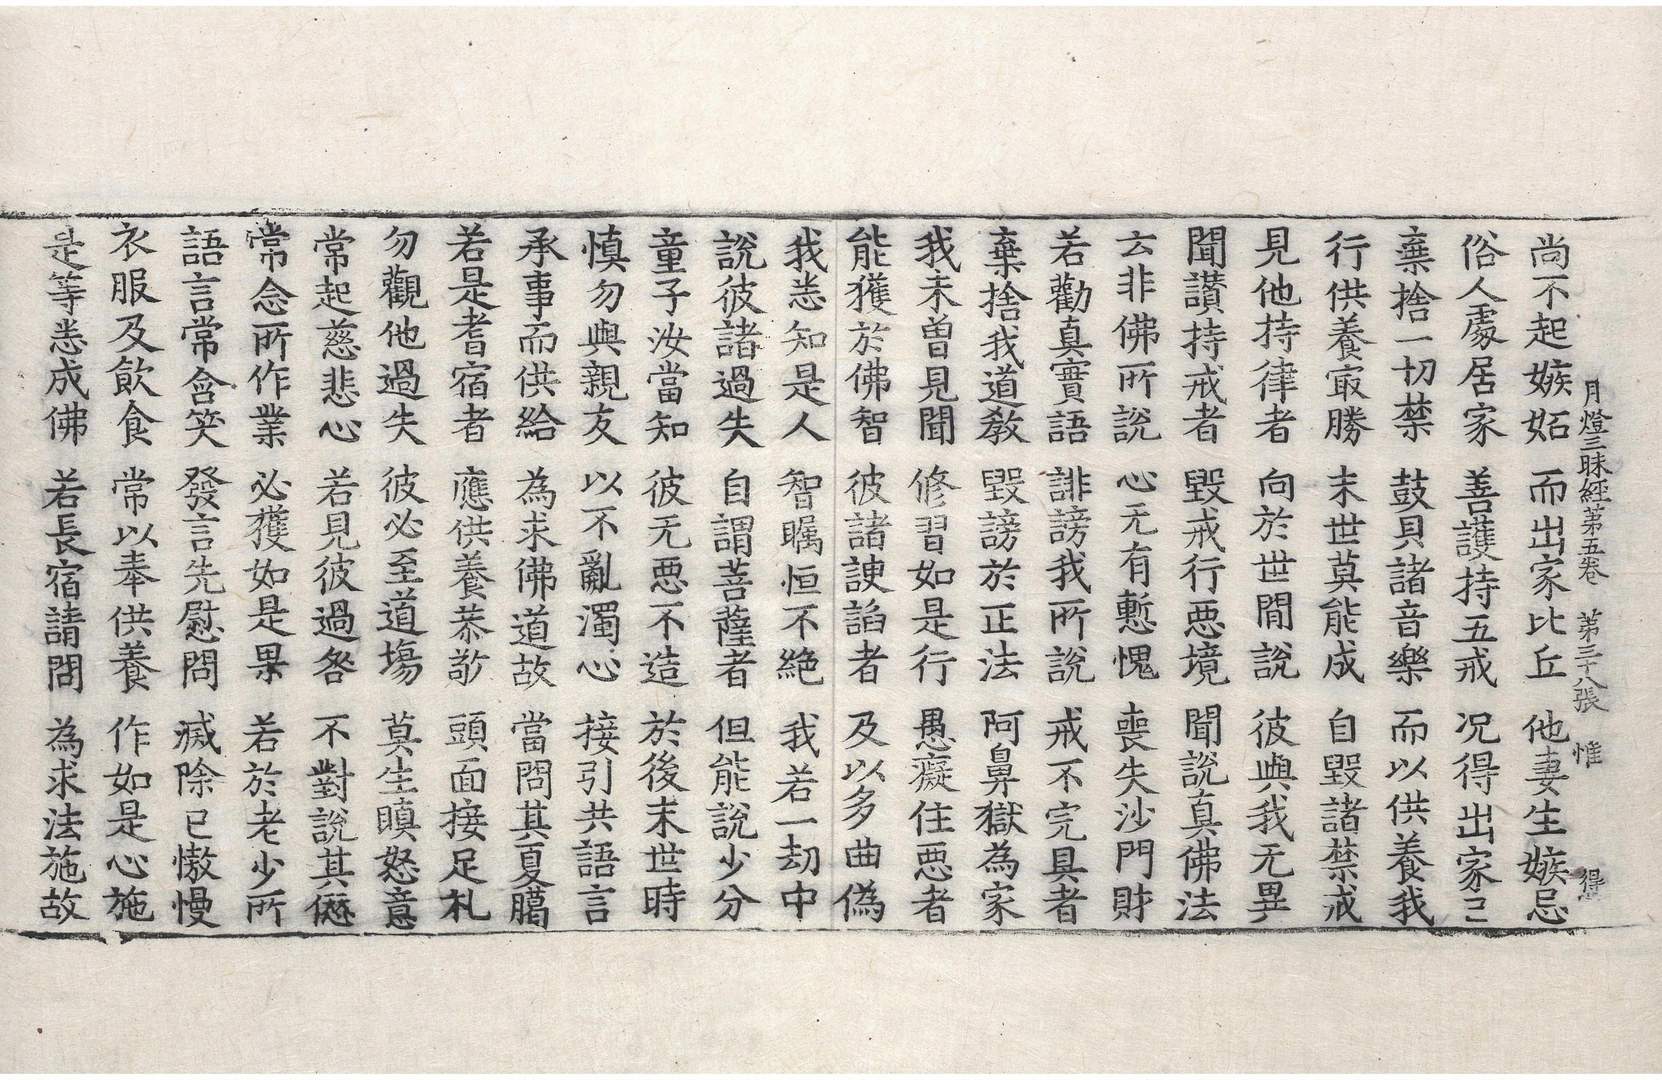 月燈三昧經第五卷 第三十八張 惟 得
尚不起嫉妬 而出家比丘 他妻生嫉忌
俗人處居家 善護持五戒 况得出家已
棄捨一切禁 鼓貝諸音樂 而以供養我
行供養㝡勝 末世莫能成 自毀諸禁戒
見他持律者 向於世間說 彼與我无異
聞讚持戒者 毀戒行惡境 聞說真佛法
云非佛所說 心无有慙愧 喪失沙門財
若勸真實語 誹謗我所說 戒不完具者
棄捨我道教 毀謗於正法 阿鼻獄為家
我未曽見聞 修習如是行 愚癡住惡者
能獲於佛智 彼諸諛諂者 及以多曲偽
我悉知是人 智矚恒不絕 我若一劫中
說彼諸過失 自謂菩薩者 但能說少分
童子汝當知 彼无惡不造 於後末世時
慎勿與親友 以不亂濁心 接引共語言
承事而供給 為求佛道故 當問其夏臈
若是耆宿者 應供養恭敬 頭面接足礼
勿觀他過失 彼必至道場 莫生瞋怒意
常起慈悲心 若見彼過咎 不對說其𠎝
常念所作業 必獲如是果 若於老少所
語言常含笑 發言先慰問 滅除已憿慢
衣服及飲食 常以奉供養 作如是心施
是等悉成佛 若長宿請問 為求法施故